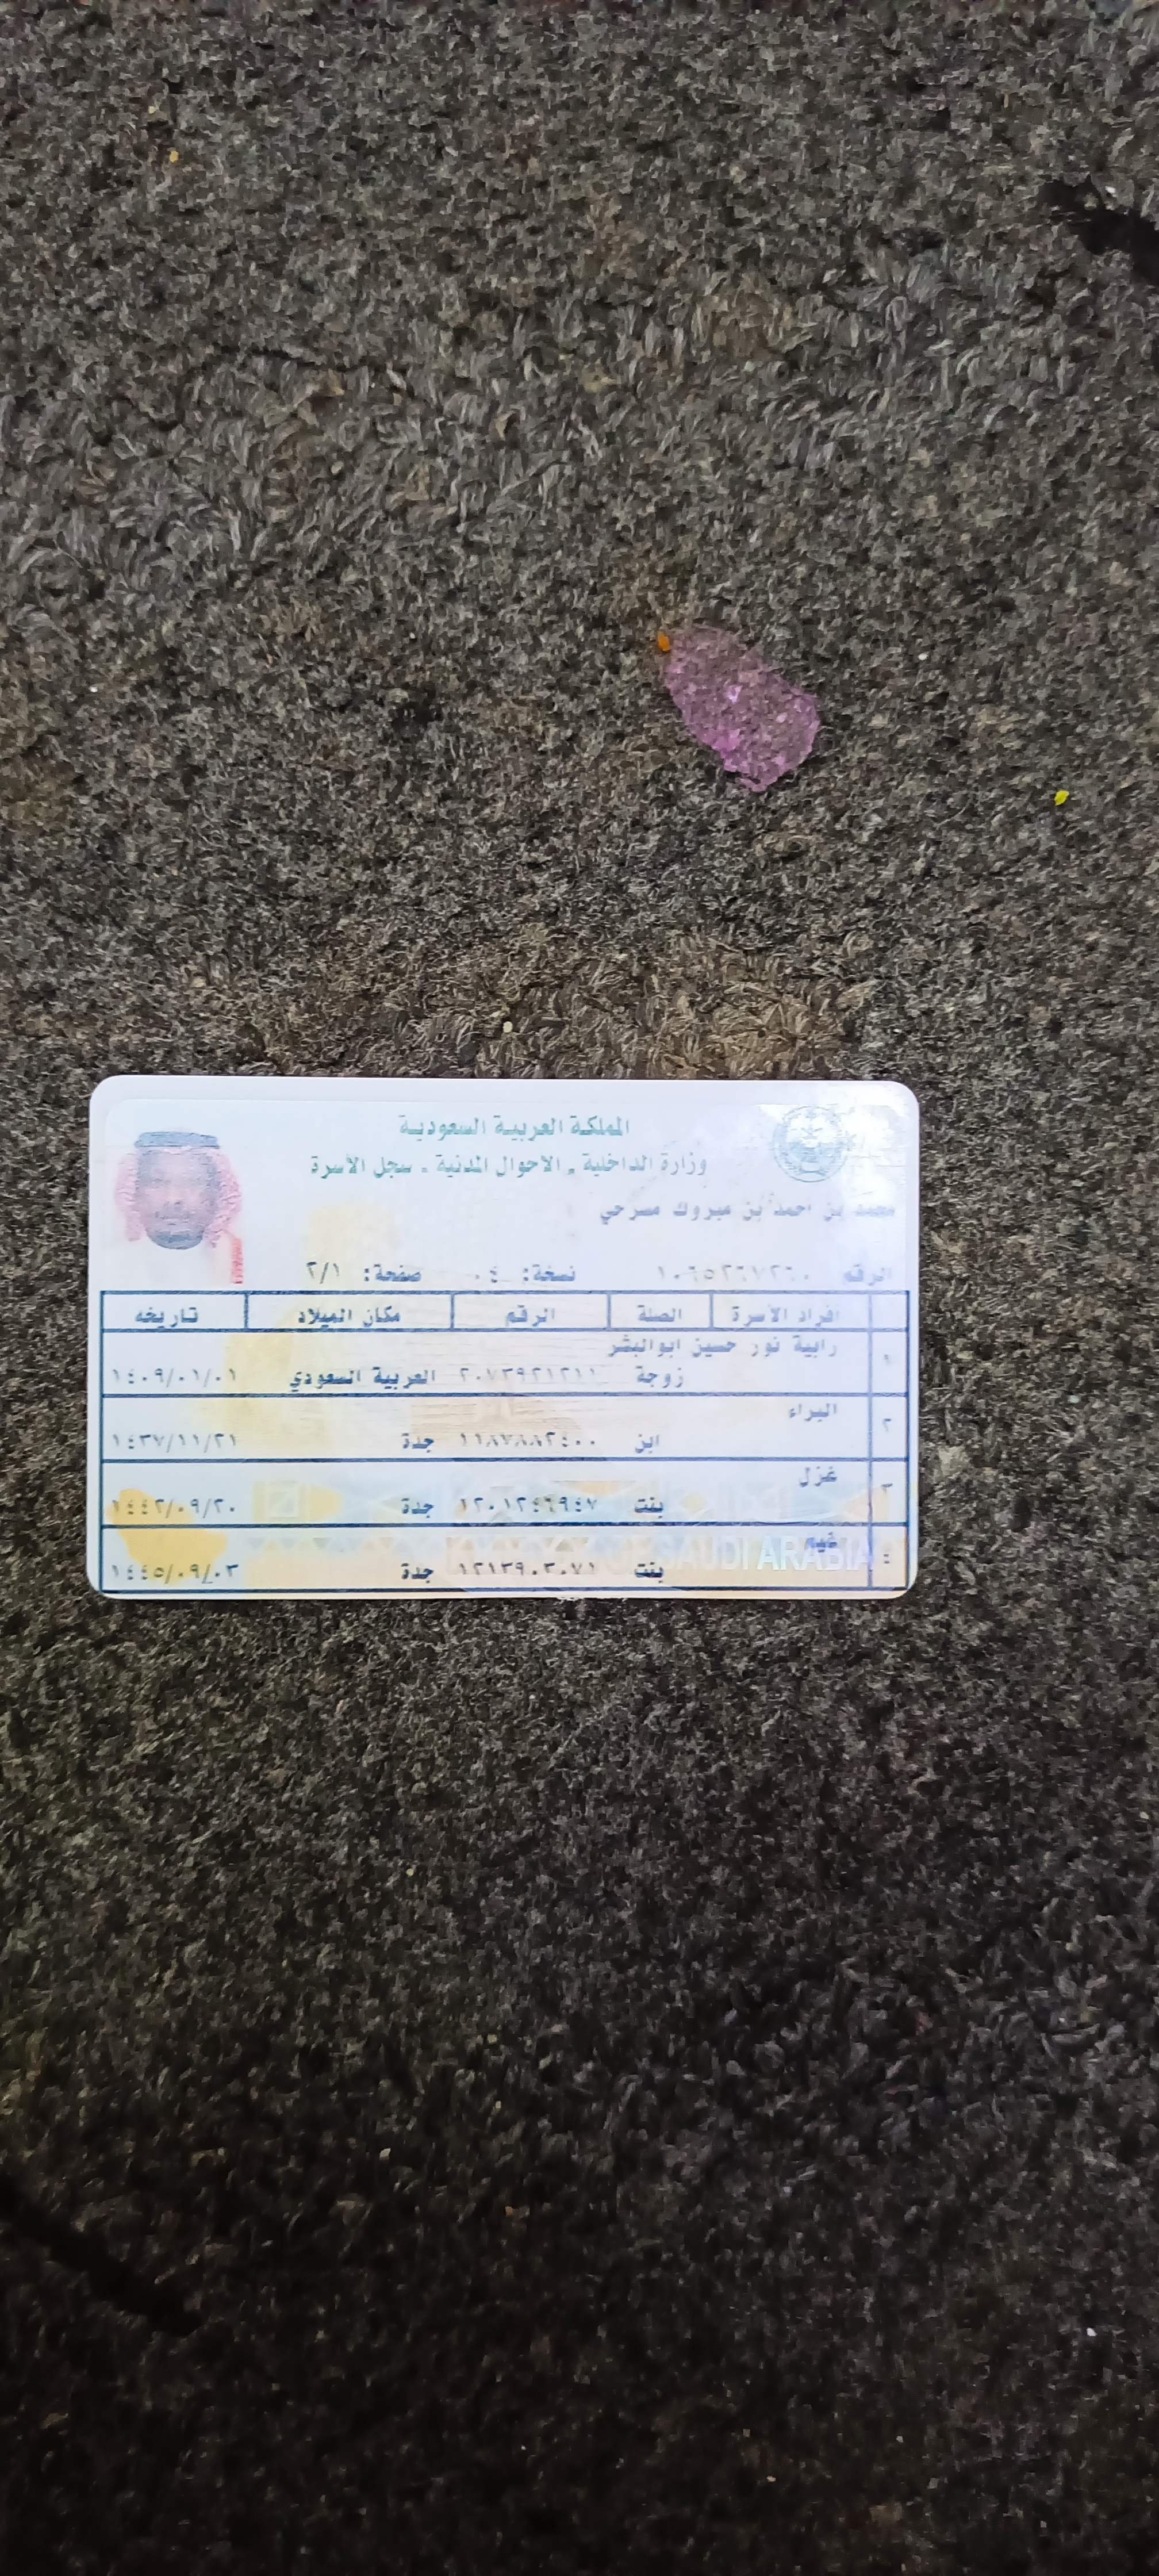 المملكة العربية السعودية
وزارة الداخلية - الاحوال المدنية - سجل الأسرة
محمد بن احمد بن مبروك مسرحي
الرقم نسخة: ٠٤ صفحة: ٢/١
افراد الأسرة الصلة الرقم مكان الميلاد تاريخه
١ رابية نور حسين ابوالبشر
زوجة ٢٠٧٣٩٢١٢١١ العربية السعودي ١٤٠٩/٠١/٠١
٢ البراء
ابن ١١٨٧٨٨٢٤٠٠ جدة ١٤٣٧/١١/٢١
٣ غزل
بنت ١٢٠١٢٤٦٩٤٧ جدة ١٤٤٢/٠٩/٢٠
٤
بنت ١٢١٣٩٠٣٠٧١ جدة ١٤٤٥/٠٩/٠٣
SAUDI ARABIA